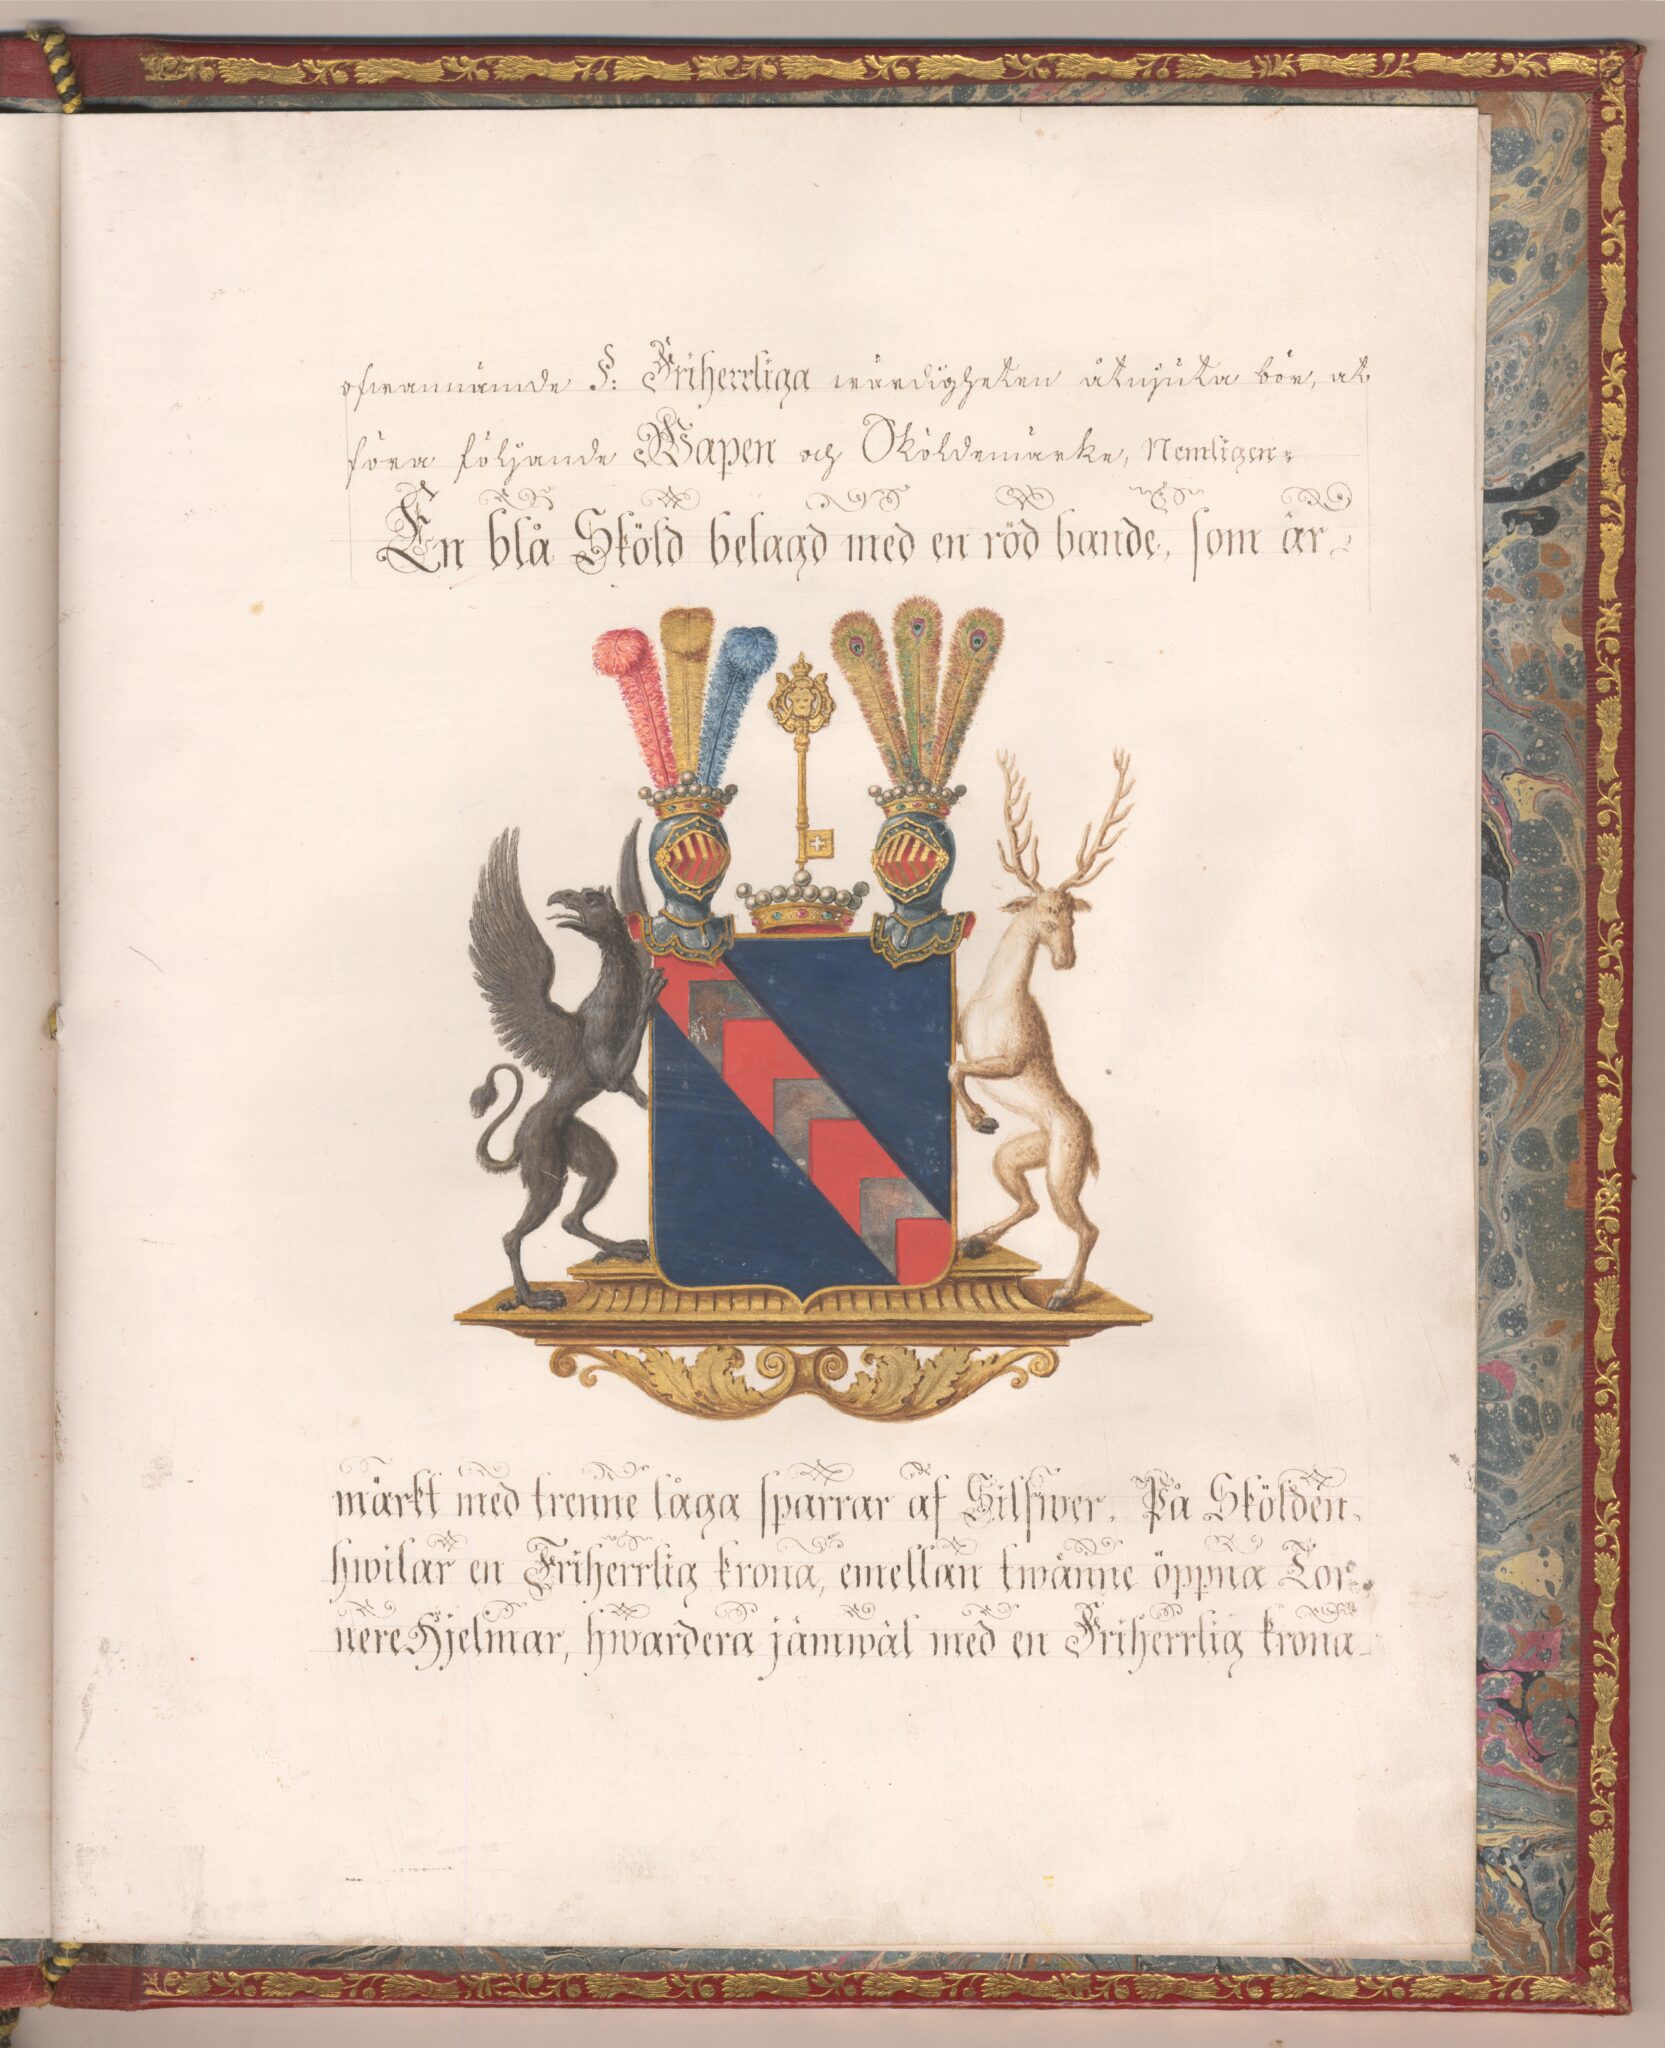 ofvannämde §: Friherrliga värdigheten åtnjuta bör, at
föra följande Wapen och Sköldemärke, Nemligen=
En blå Sköld belagd med en röd bande, som är
märkt med trenne låga sparrar af Silfwer. På Skölden
hwilar en Friherrlig krona, emellan twänne öppna Tor-
nere Hjelmar, hwardera jämwäl med en Friherrlig krona